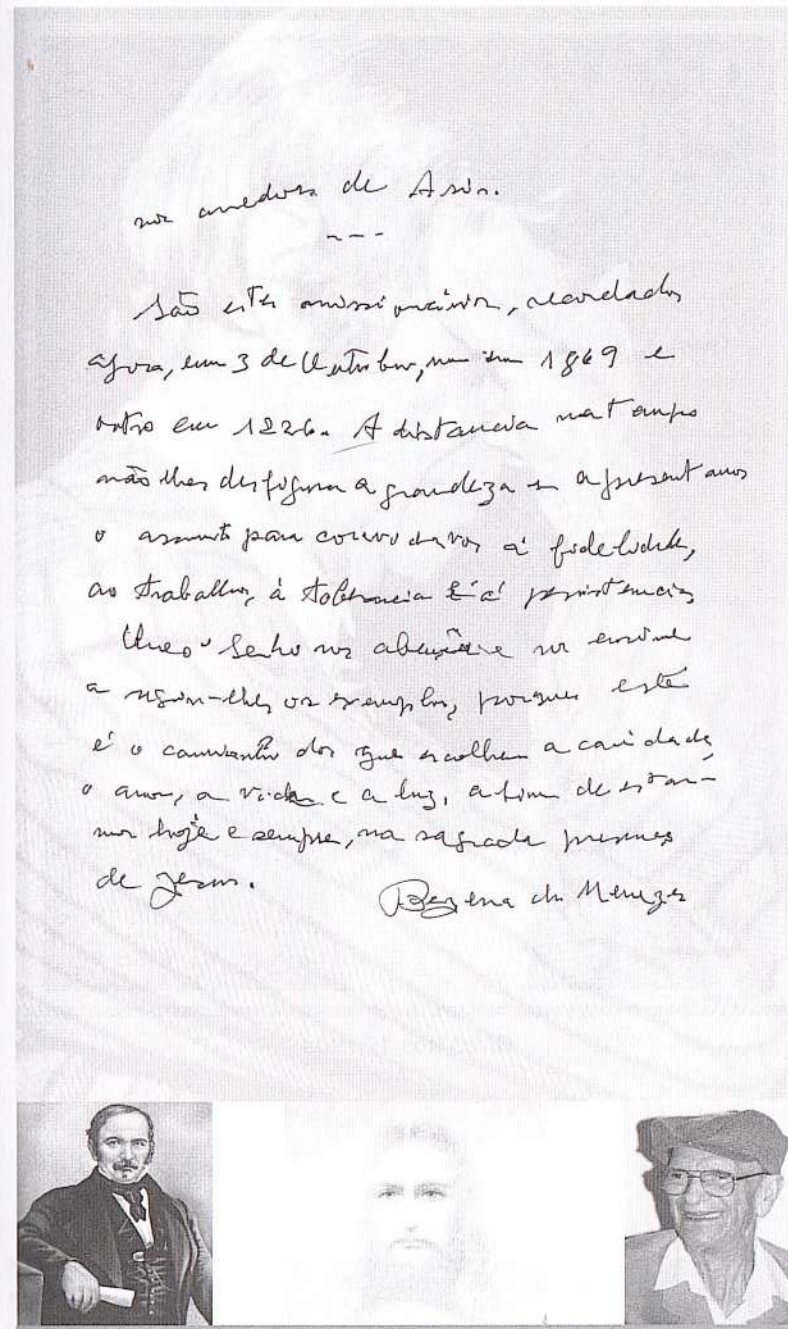 nos arredores de Assis.
---
São estes missionários, recordados
agora, em 3 de Outubro, um em 1869 e
outro em 1226. A distancia no tempo
não lhes desfigura a grandeza e apresentamos
o assunto para convidarvos á fidelidade,
ao trabalho, à tolerancia e á persistencia
Que o Senhor nos abençõe e nos ensine
a seguir-lhes os exemplos, porque este
é o caminho dos que escolhem a caridade,
o amor, a vida e a luz, a fim de estar-
mos hoje e sempre, na sagrada presença
de Jesus.
Bezerra de Menezes